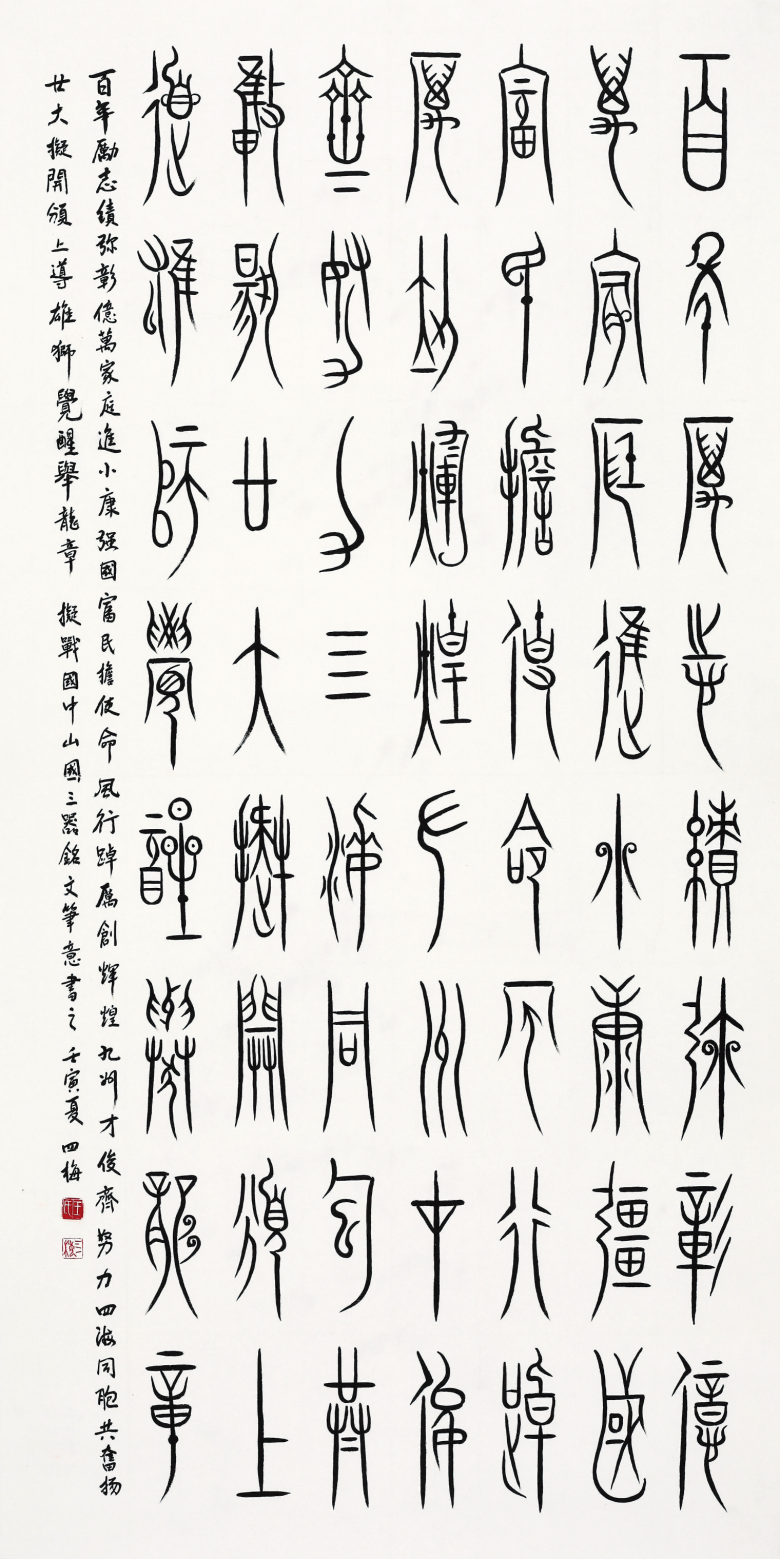 百年厲志績弥彰億
萬家庭進小康彊國
富民擔使命風行踔
厲剏煇煌九州才俊
齊努力四海同包共
奮揚廿大擬開頒上
導雄師覺醒舉龍章
百年勵志績弥彰億萬家庭進小康强國富民擔使命風行踔厲創輝煌九州才俊齊努力四海同胞共奮扬
廿大擬開頒上導雄獅覺醒舉龍章 擬戰國中山國三器銘文筆意書之 壬寅夏 四梅